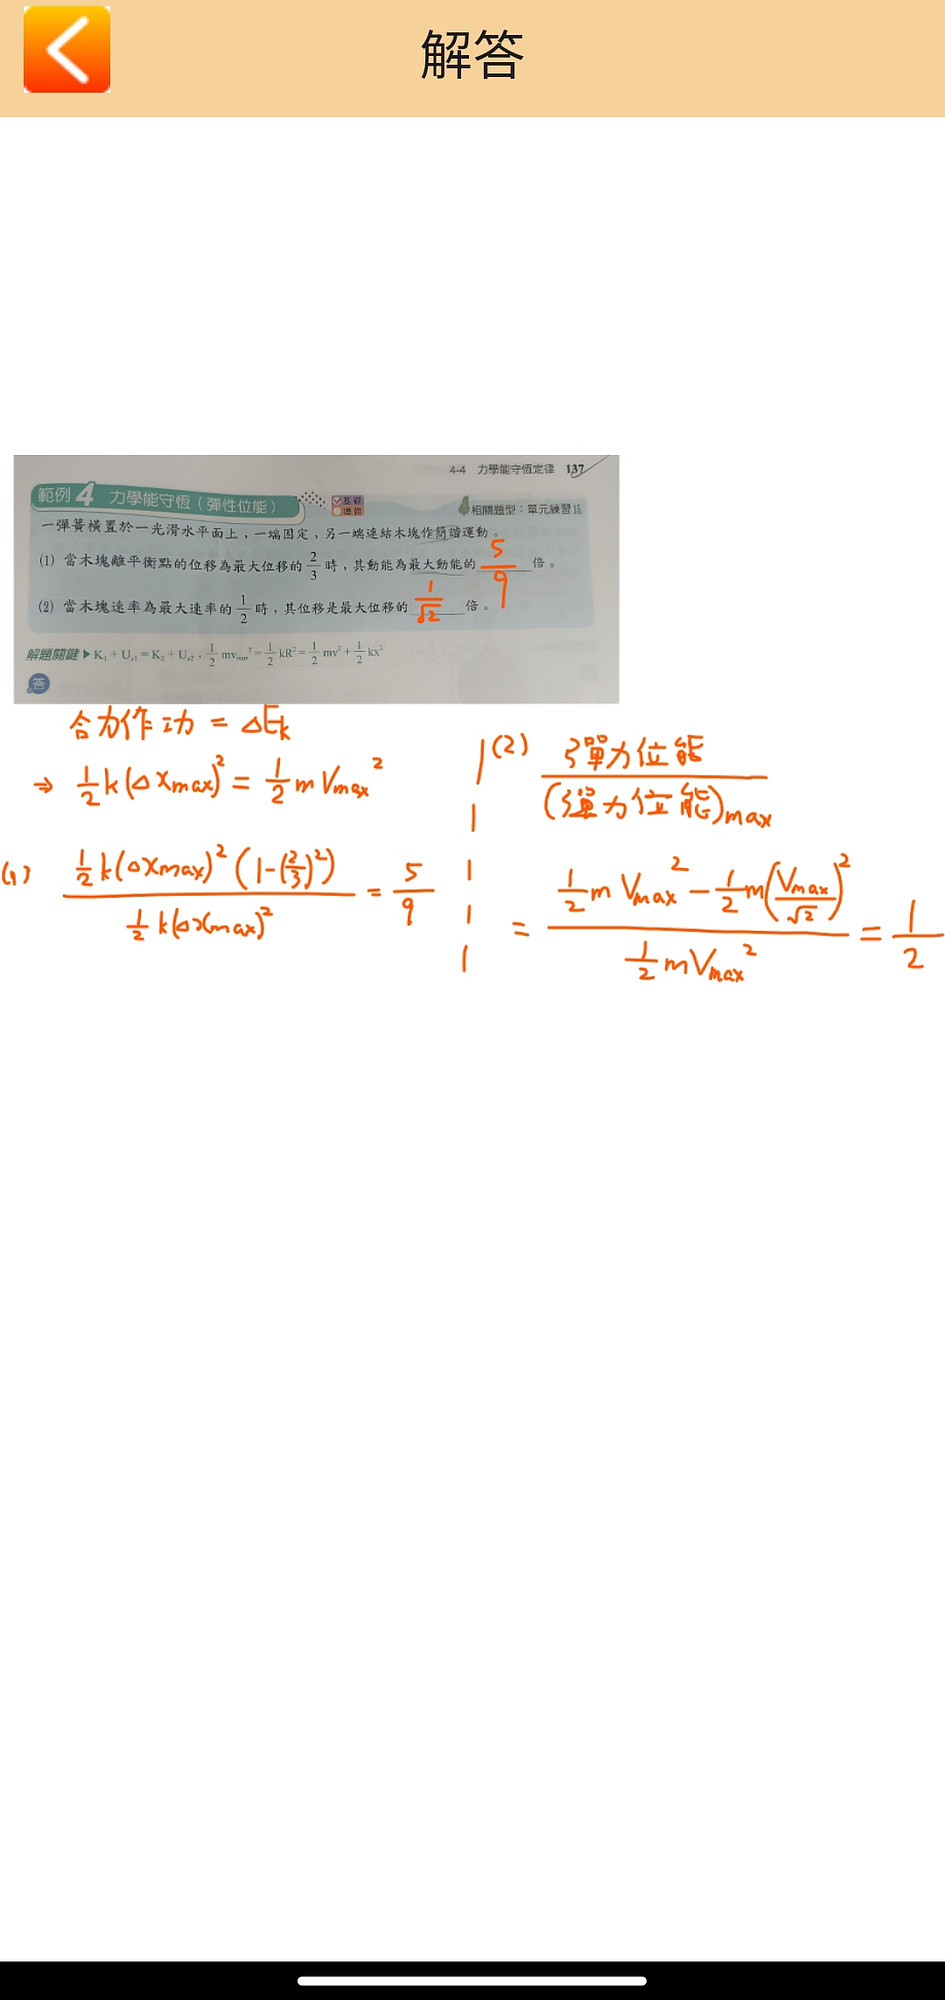 解答
4-4 力學能守恆定律 137
範例 4 力學能守恆（彈性位能）
相關題型：單元練習 15
一彈簧橫置於一光滑水平面上，一端固定，另一端連結木塊作簡諧運動。
(1) 當木塊離平衡點的位移為最大位移的 2/3 時，其動能為最大動能的 5/9 倍。
(2) 當木塊速率為最大速率的 1/2 時，其位移是最大位移的 1/√2 倍。
解題關鍵 ▶ K₁ + Uₛ₁ = K₂ + Uₛ₂，1/2 mvₘₐₓ² = 1/2 kR² = 1/2 mv² + 1/2 kx²
答
合力作功 = ΔEk
⇒ 1/2 k(Δxmax)² = 1/2 m Vmax²
(1) 1/2 k(Δxmax)² (1-(2/3)²) / 1/2 k(Δxmax)² = 5/9
(2) 彈力位能 / (彈力位能)max
= 1/2 m Vmax² - 1/2 m(Vmax/√2)² / 1/2 mVmax² = 1/2